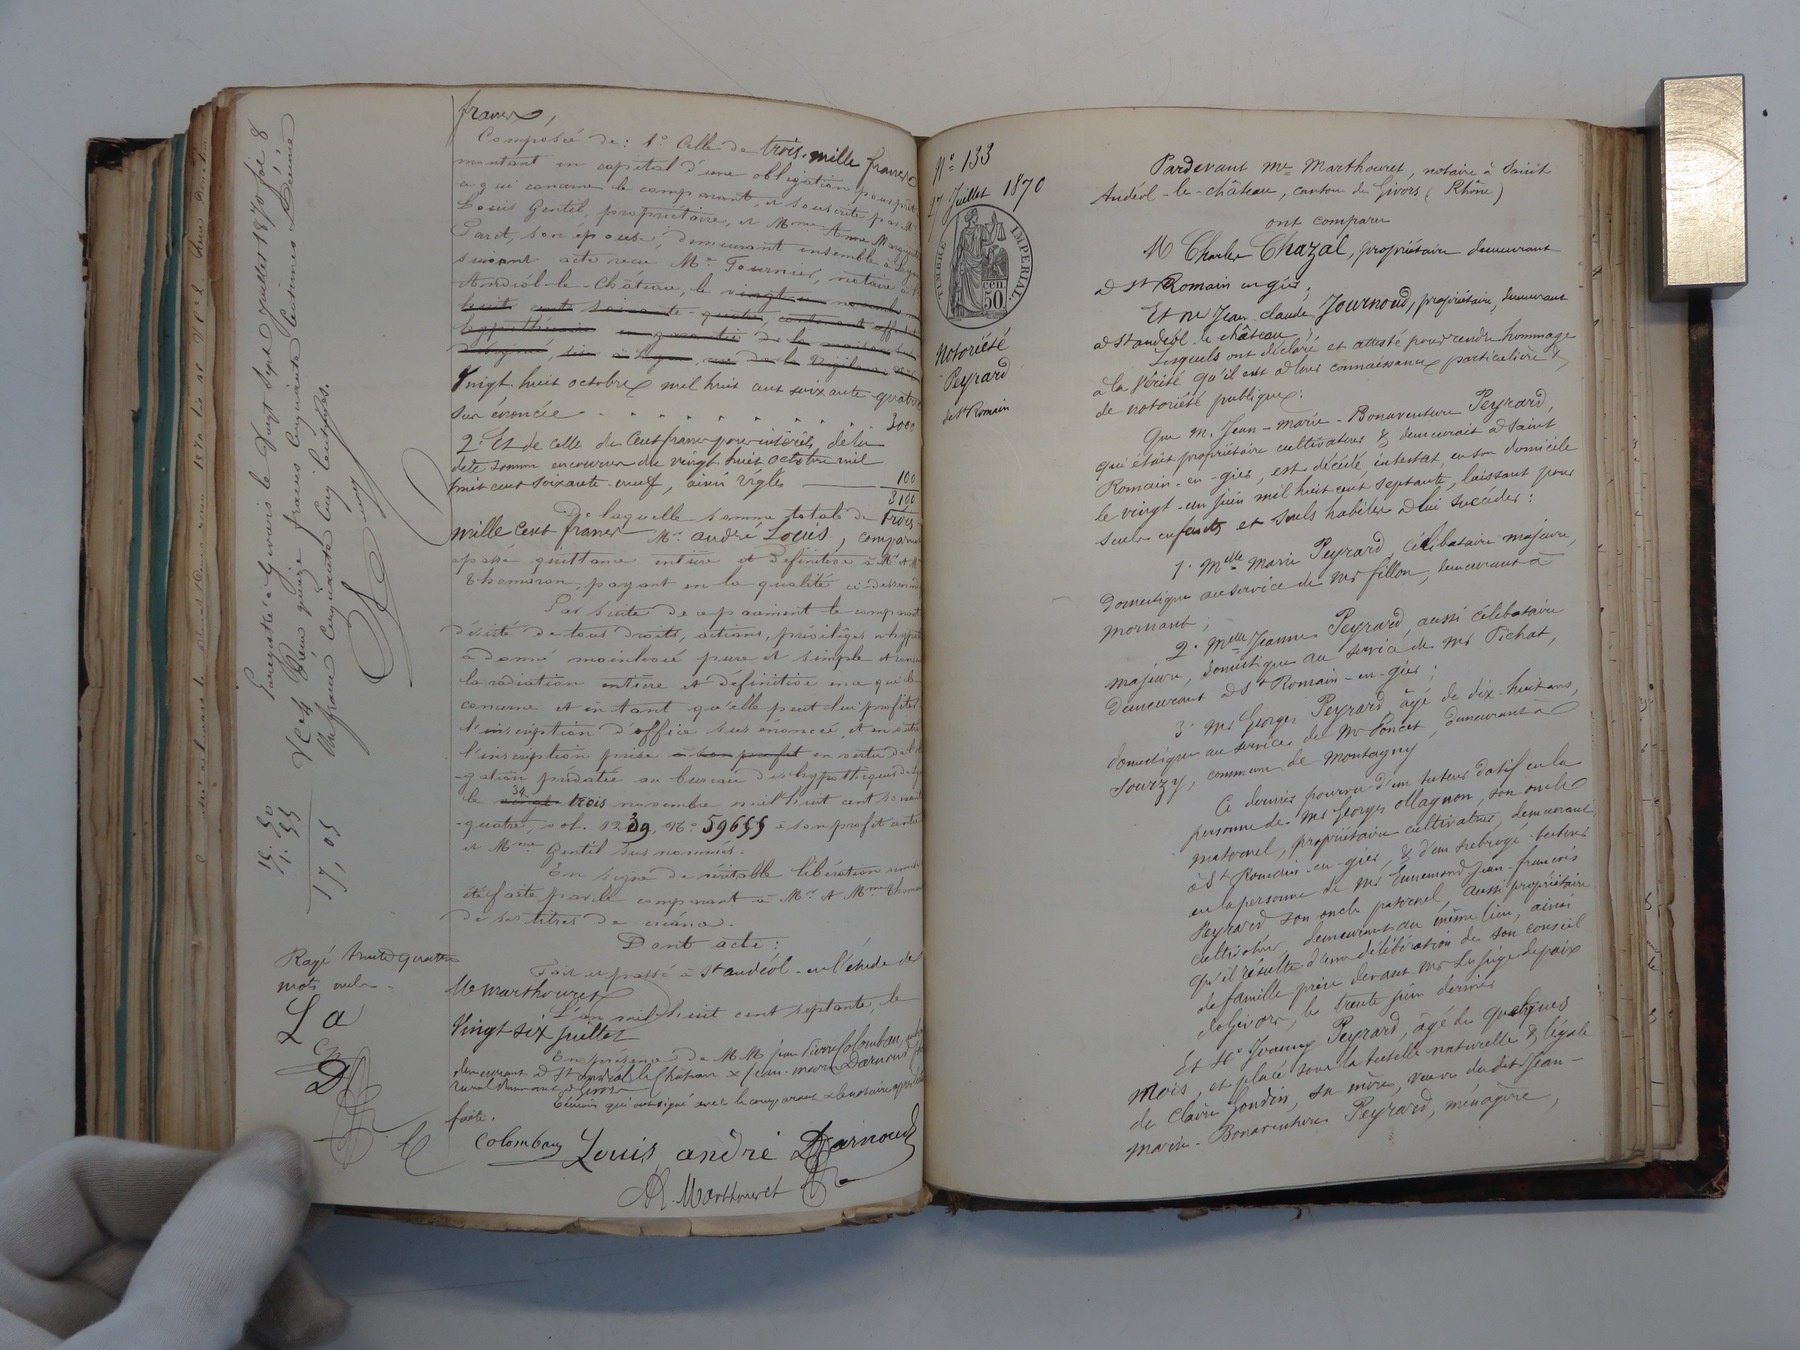 francs,
Composée de: 1° Celle de trois mille francs
montant en capital d'une obligation pour prêt
a qui concerne le comparant, et souscrite par Mr
Louis Gentil, propriétaire, et Mme Anne Marguerite
Paret, son épouse, demeurant ensemble à
suivant acte reçu Me Fournier, notaire à St
Andéol-le-Château, le vingt
huit cent soixante-quatre, contenant
hypothécaire en garantie de la maison
désigné, sise à Lyon, rue de la Vigilance
Vingt-huit octobre mil huit cent soixante-quatre
sus énoncée 3000
2° Et de celle de Cent francs pour intérêts, de la
dete somme encourus du vingt huit octobre mil
huit cent soixante-neuf, ainsi réglés 100
3100
De laquelle somme totale de trois
mille cent francs Mr. andré Louis, comparant
a passé quittance entière et définitive à Mr et Me
Thomaron, payant en la qualité ci-dessus
Par suite de ce paiement le comparant
désisté de tous droits, actions, privilèges et hyp
a donné mainlevée pure et simple et
la radiation entière et définitive en ce qui le
concerne et en tant qu'elle peut lui profiter
l'inscription d'office sus énoncée, et en outre
l'inscription prise à son profit en vertu de l'obli
-gation prédatée au bureau des hypothèques de
le vingt trois novembre mil huit cent soixante
-quatre, vol. 1239, No. 59655 à son profit contre
et Mme Gentil sus nommés.
En signe de véritable libération remise
été faite par le comparant à Mr et Mme Thomaron
de ses titres de créance.
Dont acte:
Fait et passé à St andéol en l'étude de
Me marthouret
L'an mil huit cent septante, le
Vingt six juillet
En présence de M.M. jean Pierre Colomban,
demeurant à St andéol le Château & jean-marie Darnoud
rural demeurant à Givors
Témoins qui ont signé avec le comparant & le notaire après lecture
faite.
Colomban Louis andré Darnoud
Marthouret
Enregistré à Givors le Vingt Sept juillet 1870 folio 8
Vo C 4 Reçu quinze francs cinquante centimes Décime
un franc Cinquante Cinq Centimes.
15. 50
1. 55
17, 05
Rayé trente quatre
mots nuls.
L a
C
D
M
N° 133
27 Juillet 1870
TIMBRE IMPERIAL.
50 cen.
Notoriété
Peyrard
de St Romain
Pardevant Me Marthouret, notaire à Saint
Andéol-le-château, canton de Givors (Rhône)
ont comparu
M Charles Chazal, propriétaire demeurant
à St Romain en gier;
Et Mr Jean Claude Journoud, propriétaire, demeurant
à St andéol-le château;
Lesquels ont déclaré et attesté pour rendre hommage
à la Vérité qu'il est à leur connaissance particulière &
de notoriété publique:
Que M. Jean-marie-Bonaventure Peyrard,
qui était propriétaire cultivateur & demeurait à Saint
Romain-en-gier, est décédé, intestat, en son domicile
le vingt-un juin mil huit cent septante, laissant pour
seuls enfants et seuls habiles à lui succéder:
1° Melle marie Peyrard, Célibataire majeure,
Domestique au service de Mr fillon, demeurant à
mornant;
2° Melle Jeanne Peyrard, aussi célibataire
majeure, Domestique au service de Mr Pichat,
Demeurant à St Romain-en-gier;
3° Mr Georges Peyrard, âgé de dix-huit ans,
domestique au service de Mr Poncet, demeurant à
Sourzy, commune de Montagny
Ce dernier pourvu d'un tuteur datif en la
personne de Mr Georges Magnon, son oncle
maternel, propriétaire cultivateur, demeurant
à St Romain-en-gier, & d'un subrogé-tuteur
en la personne de Mr Ennemond Jean-françois
Peyrard son oncle paternel, aussi propriétaire
cultivateur, demeurant au même lieu, ainsi
qu'il résulte d'une délibération de son conseil
de famille prise devant Mr Le juge de paix
de Givors, le trente juin dernier
Et 4° Joanny Peyrard, âgé de quelques
mois, et placé sous la tutelle naturelle & légale
de Claire Gondin, sa mère, veuve du dit Jean-
marie-Bonaventure Peyrard, ménagère,